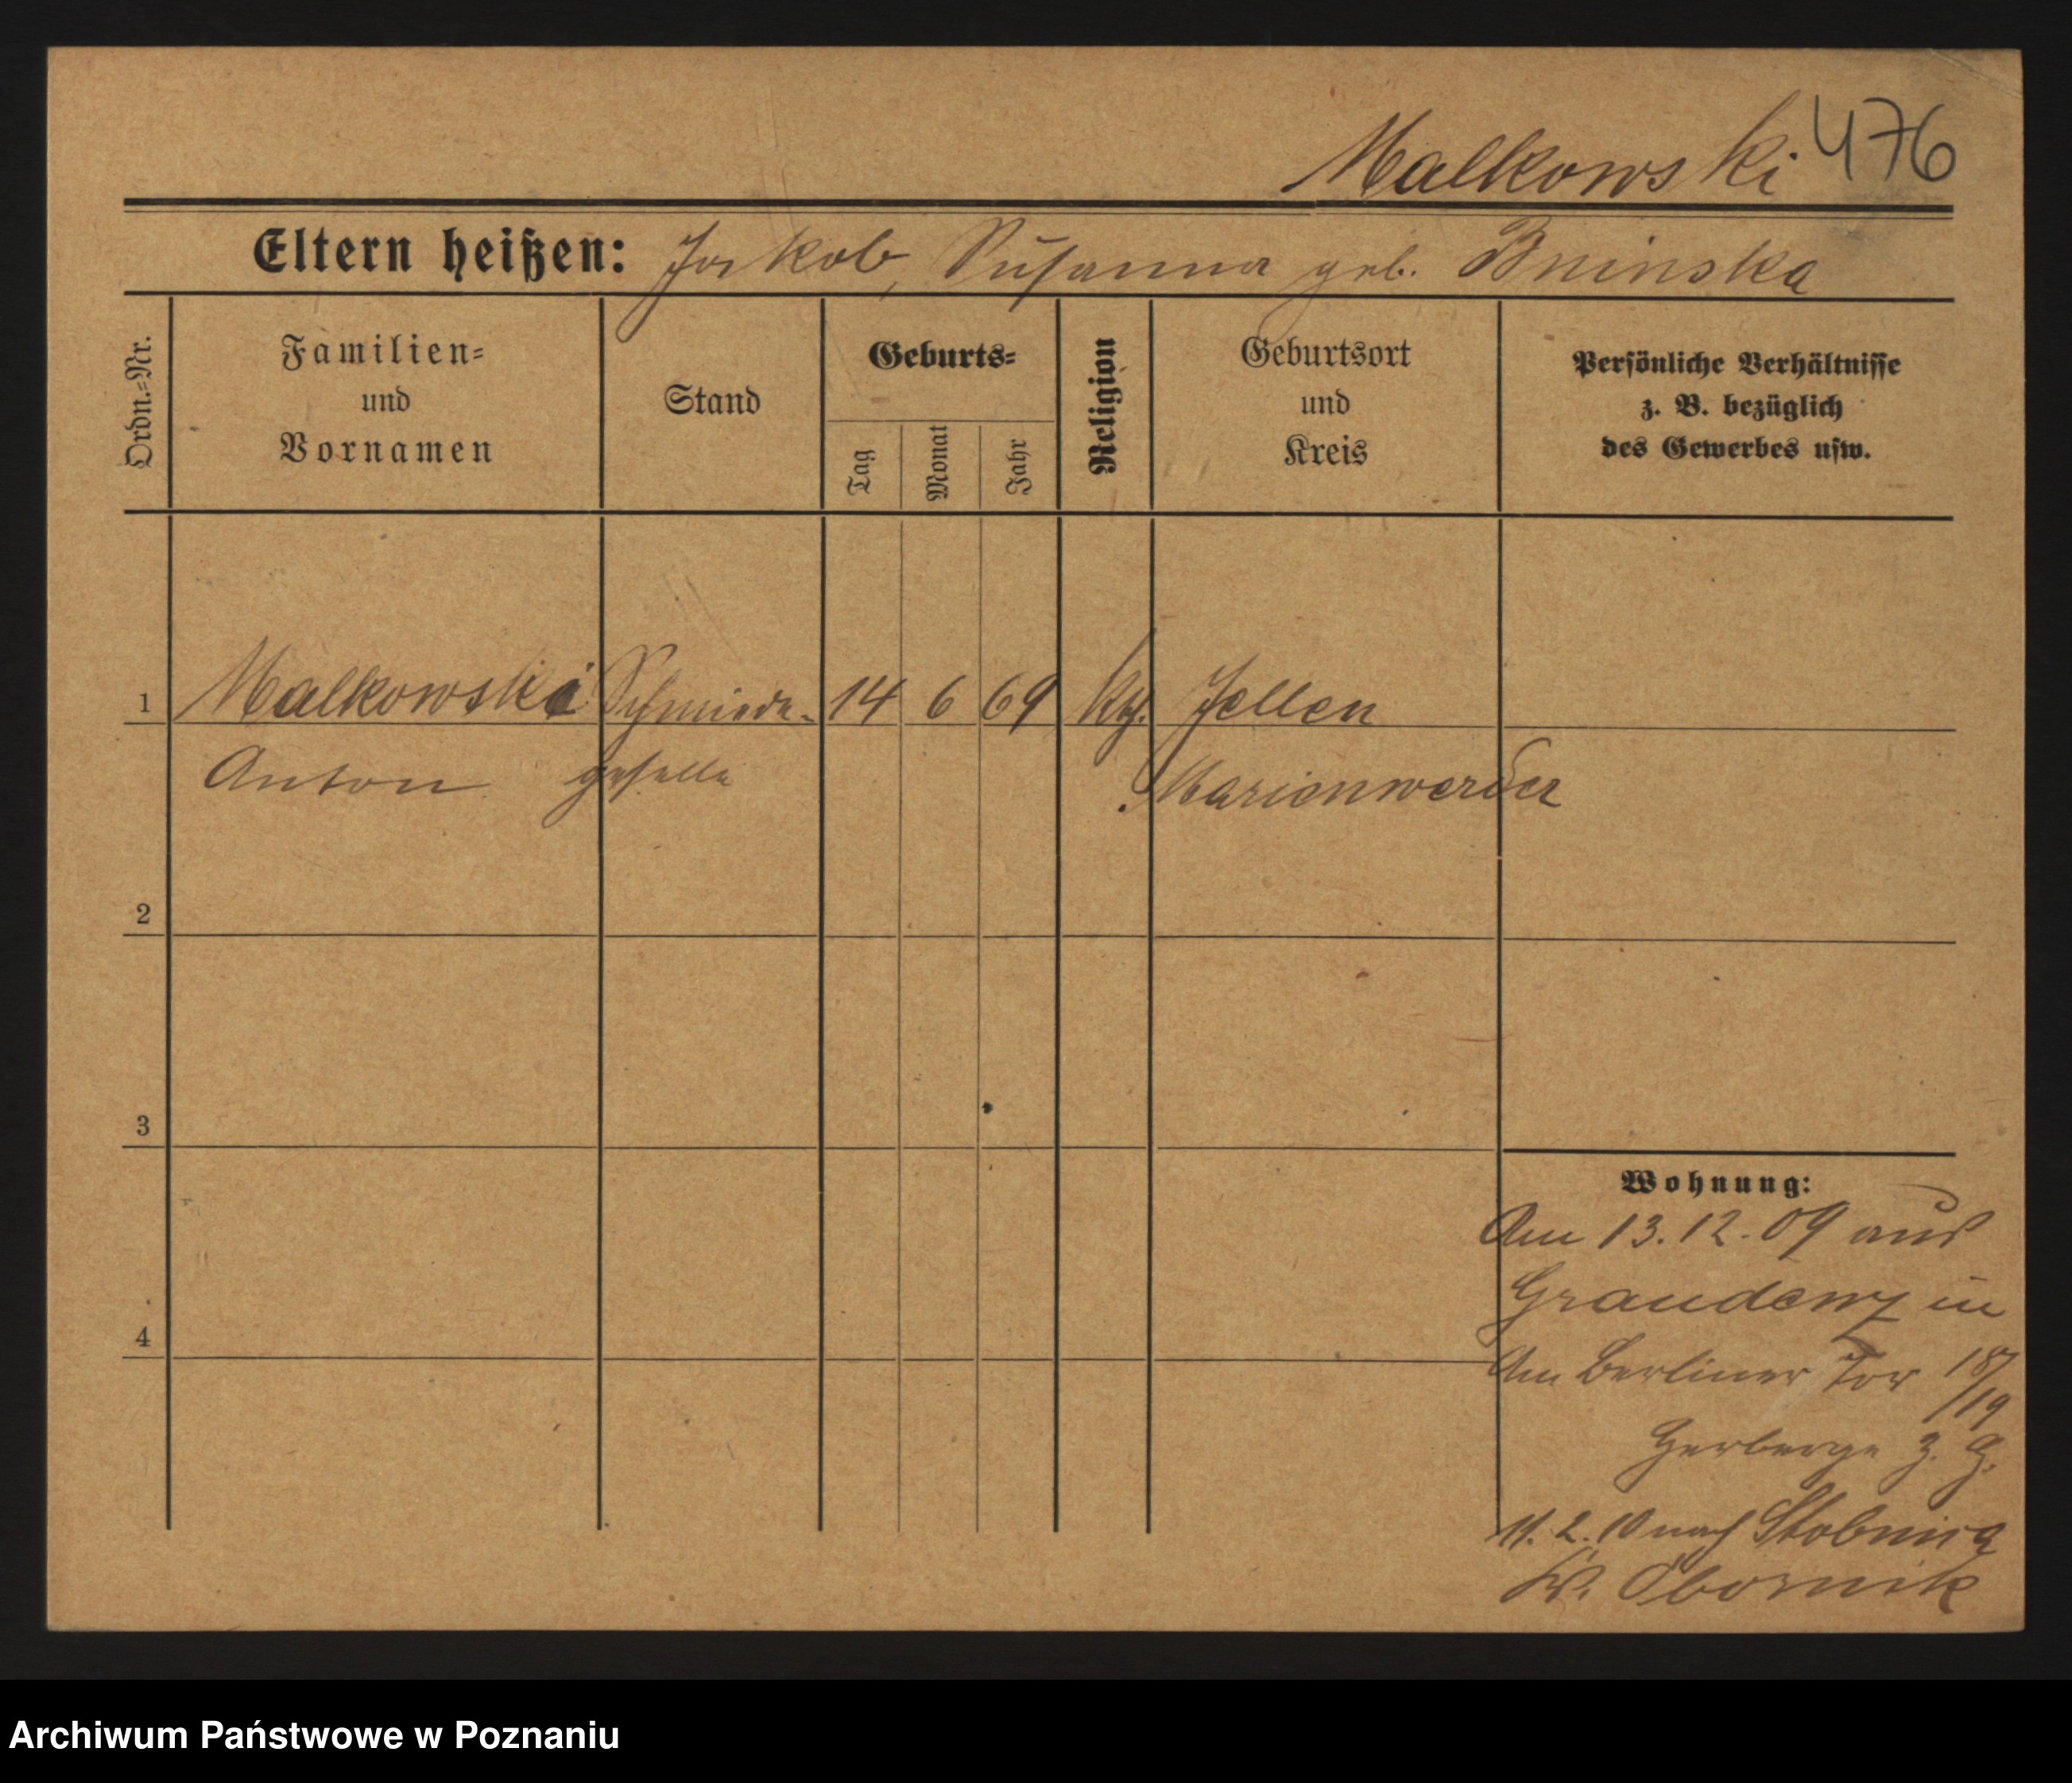 Malkowski 476
Eltern heißen: Jakob, Susanna geb. Bninska
Ordn.=Nr.
Familien=
und
Vornamen
Stand
Geburts=
Tag
Monat
Jahr
Religion
Geburtsort
und
Kreis
Persönliche Verhältnisse
z. B. bezüglich
des Gewerbes usw.
1 Malkowski Schmiede- 14 6 69 kth. Jellen
Anton geselle Marienwerder
2
3
4
Wohnung:
Am 13.12.09 aus
Graudenz in
Am Berliner Tor 18/19
Herberge z. H.
11.2.10 nach Stobnica
Kr. Obornik
Archiwum Państwowe w Poznaniu